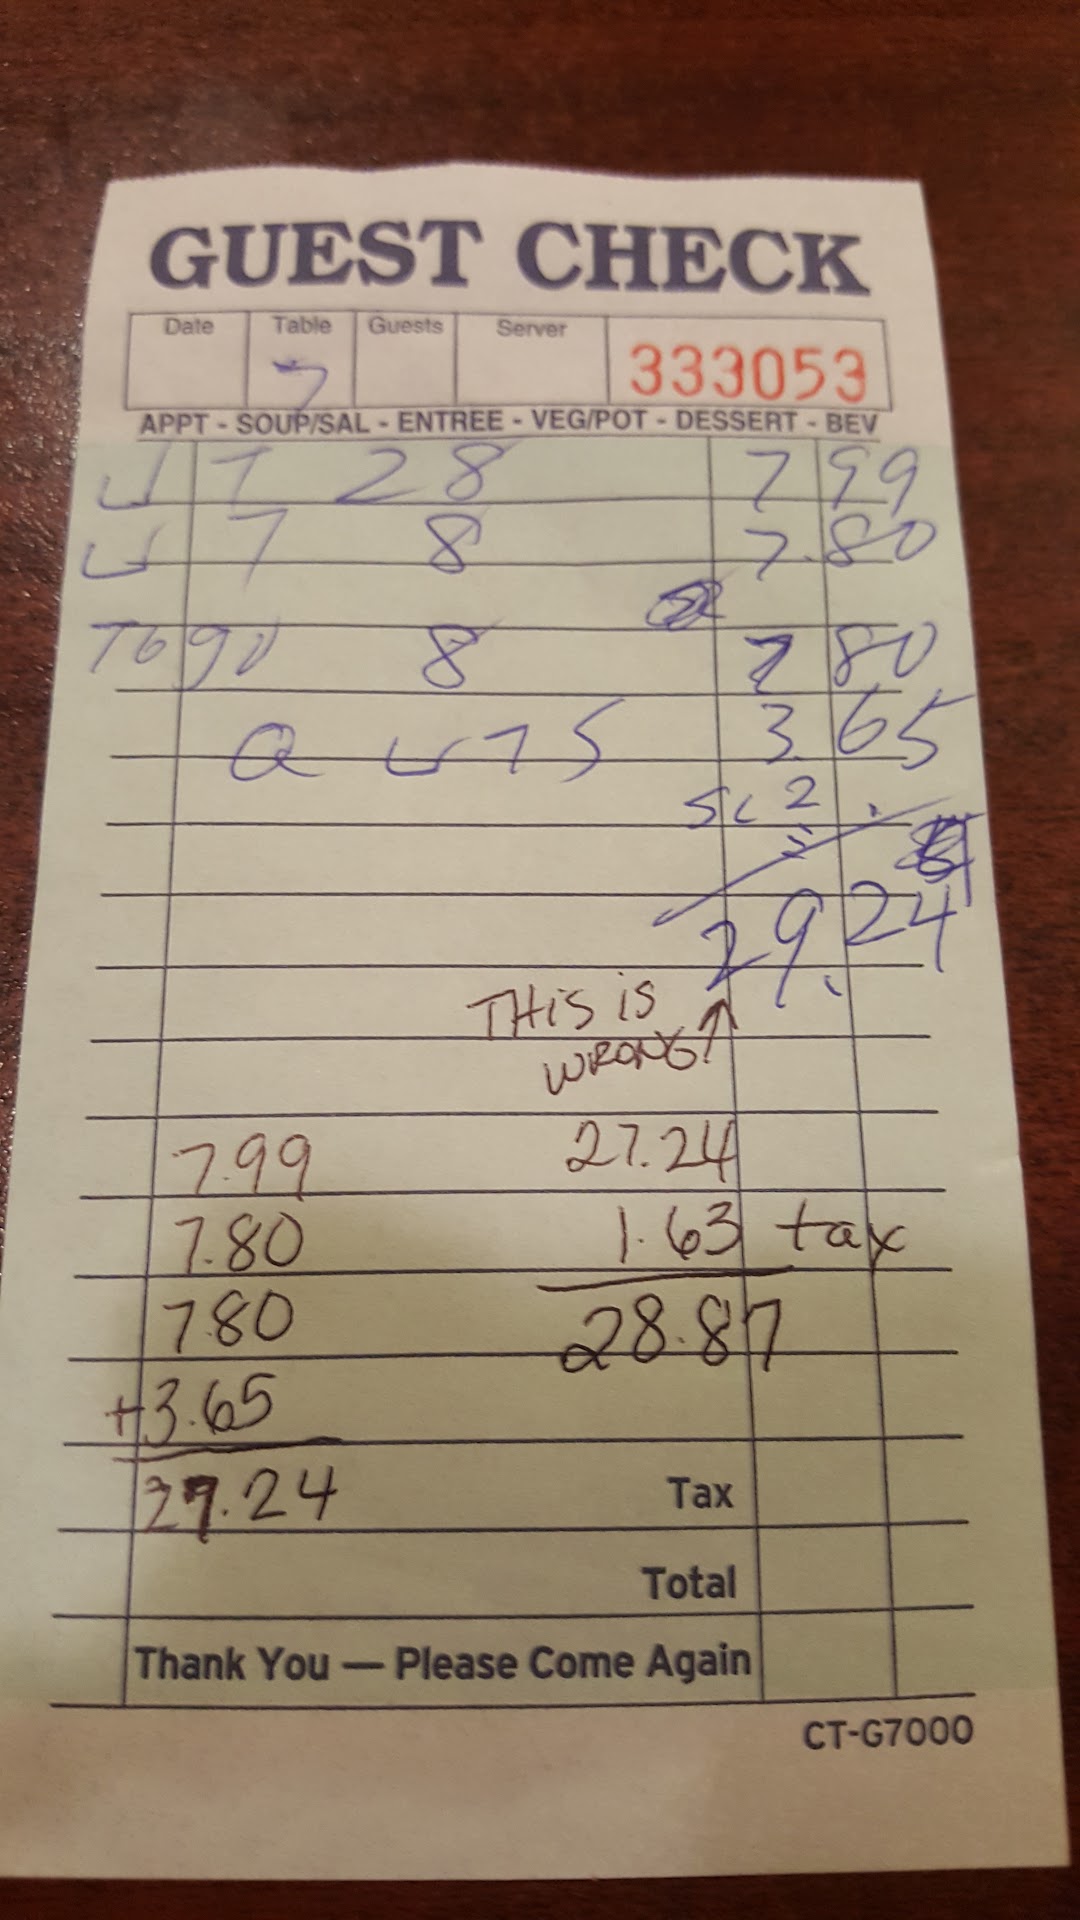 GUEST CHECK
Date Table Guests Server
7 333053
APPT - SOUP/SAL - ENTREE - VEG/POT - DESSERT - BEV
28 7 99
8 7.80
Togo 8 7 80
3.65
2
29.24
THIS IS
WRONG ↑
7.99 27.24
7.80 1.63 tax
7.80 28.87
+3.65
27.24 Tax
Total
Thank You — Please Come Again
CT-G7000